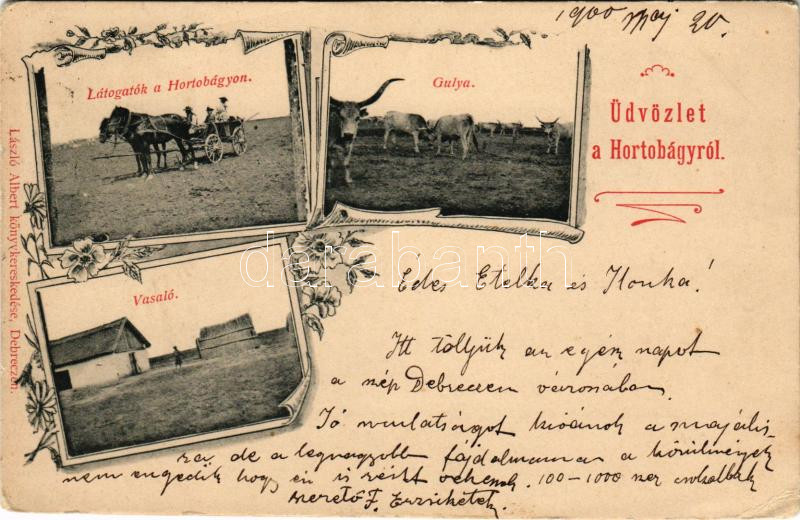 1900 maj 20.
Látogatók a Hortobágyon.
Gulya.
Üdvözlet
a Hortobágyról.
Vasaló.
László Albert könyvkereskedése, Debreczen.
darabanth
Édes Etelka és Ilonka!
Itt töltjük az egész napot
a szép Debreczen városában.
Jó mulatságot kivánok a majális-
ra, de a legnagyobb fájdalmamra a körülmények
nem engedik hogy én is részt vehessek. 100-1000 szer csokollak
szerető F. Erzsikétek.